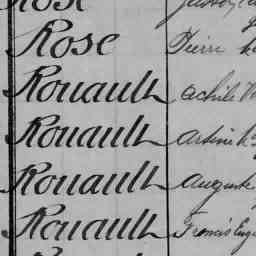 Rose
Rose Pierre
Rouault Achile
Rouault Arsène
Rouault Auguste
Rouault Francis Eug